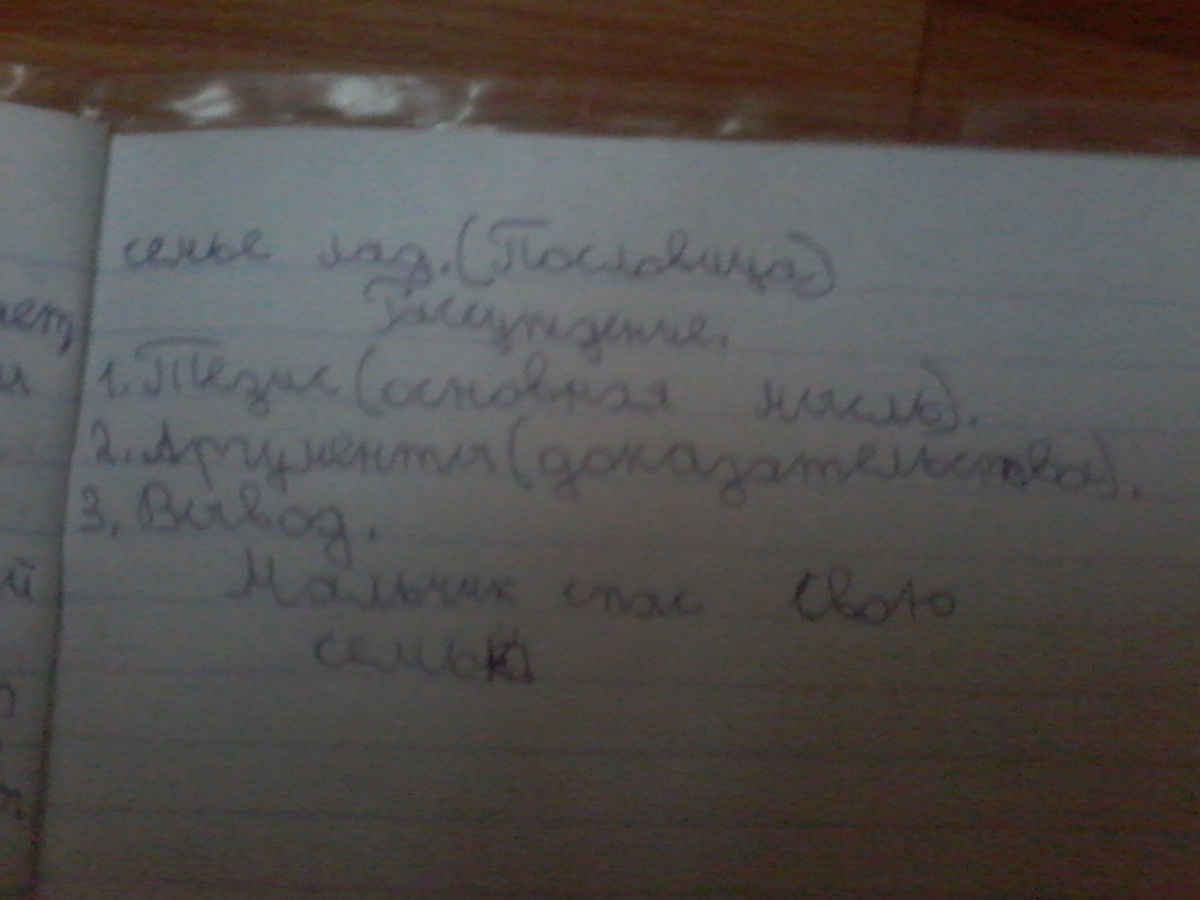 семье лад. (Пословица)
Рассуждение.
1. Тезис (основная мысль).
2. Аргументы (доказательства).
3. Вывод.
Мальчик спас свою
семью